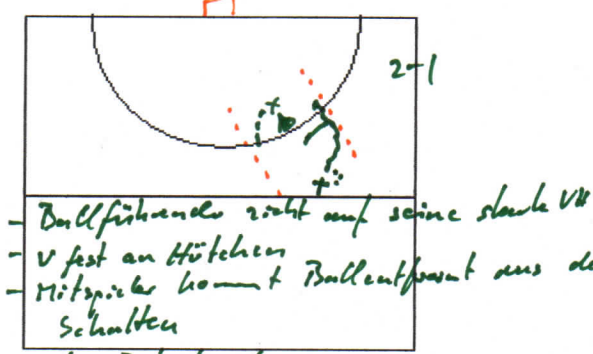 2-1
- Ballführender zieht auf seine starke
- V fest an Hütchen
- Mitspieler kommt Ballentfernt aus de
Schatten